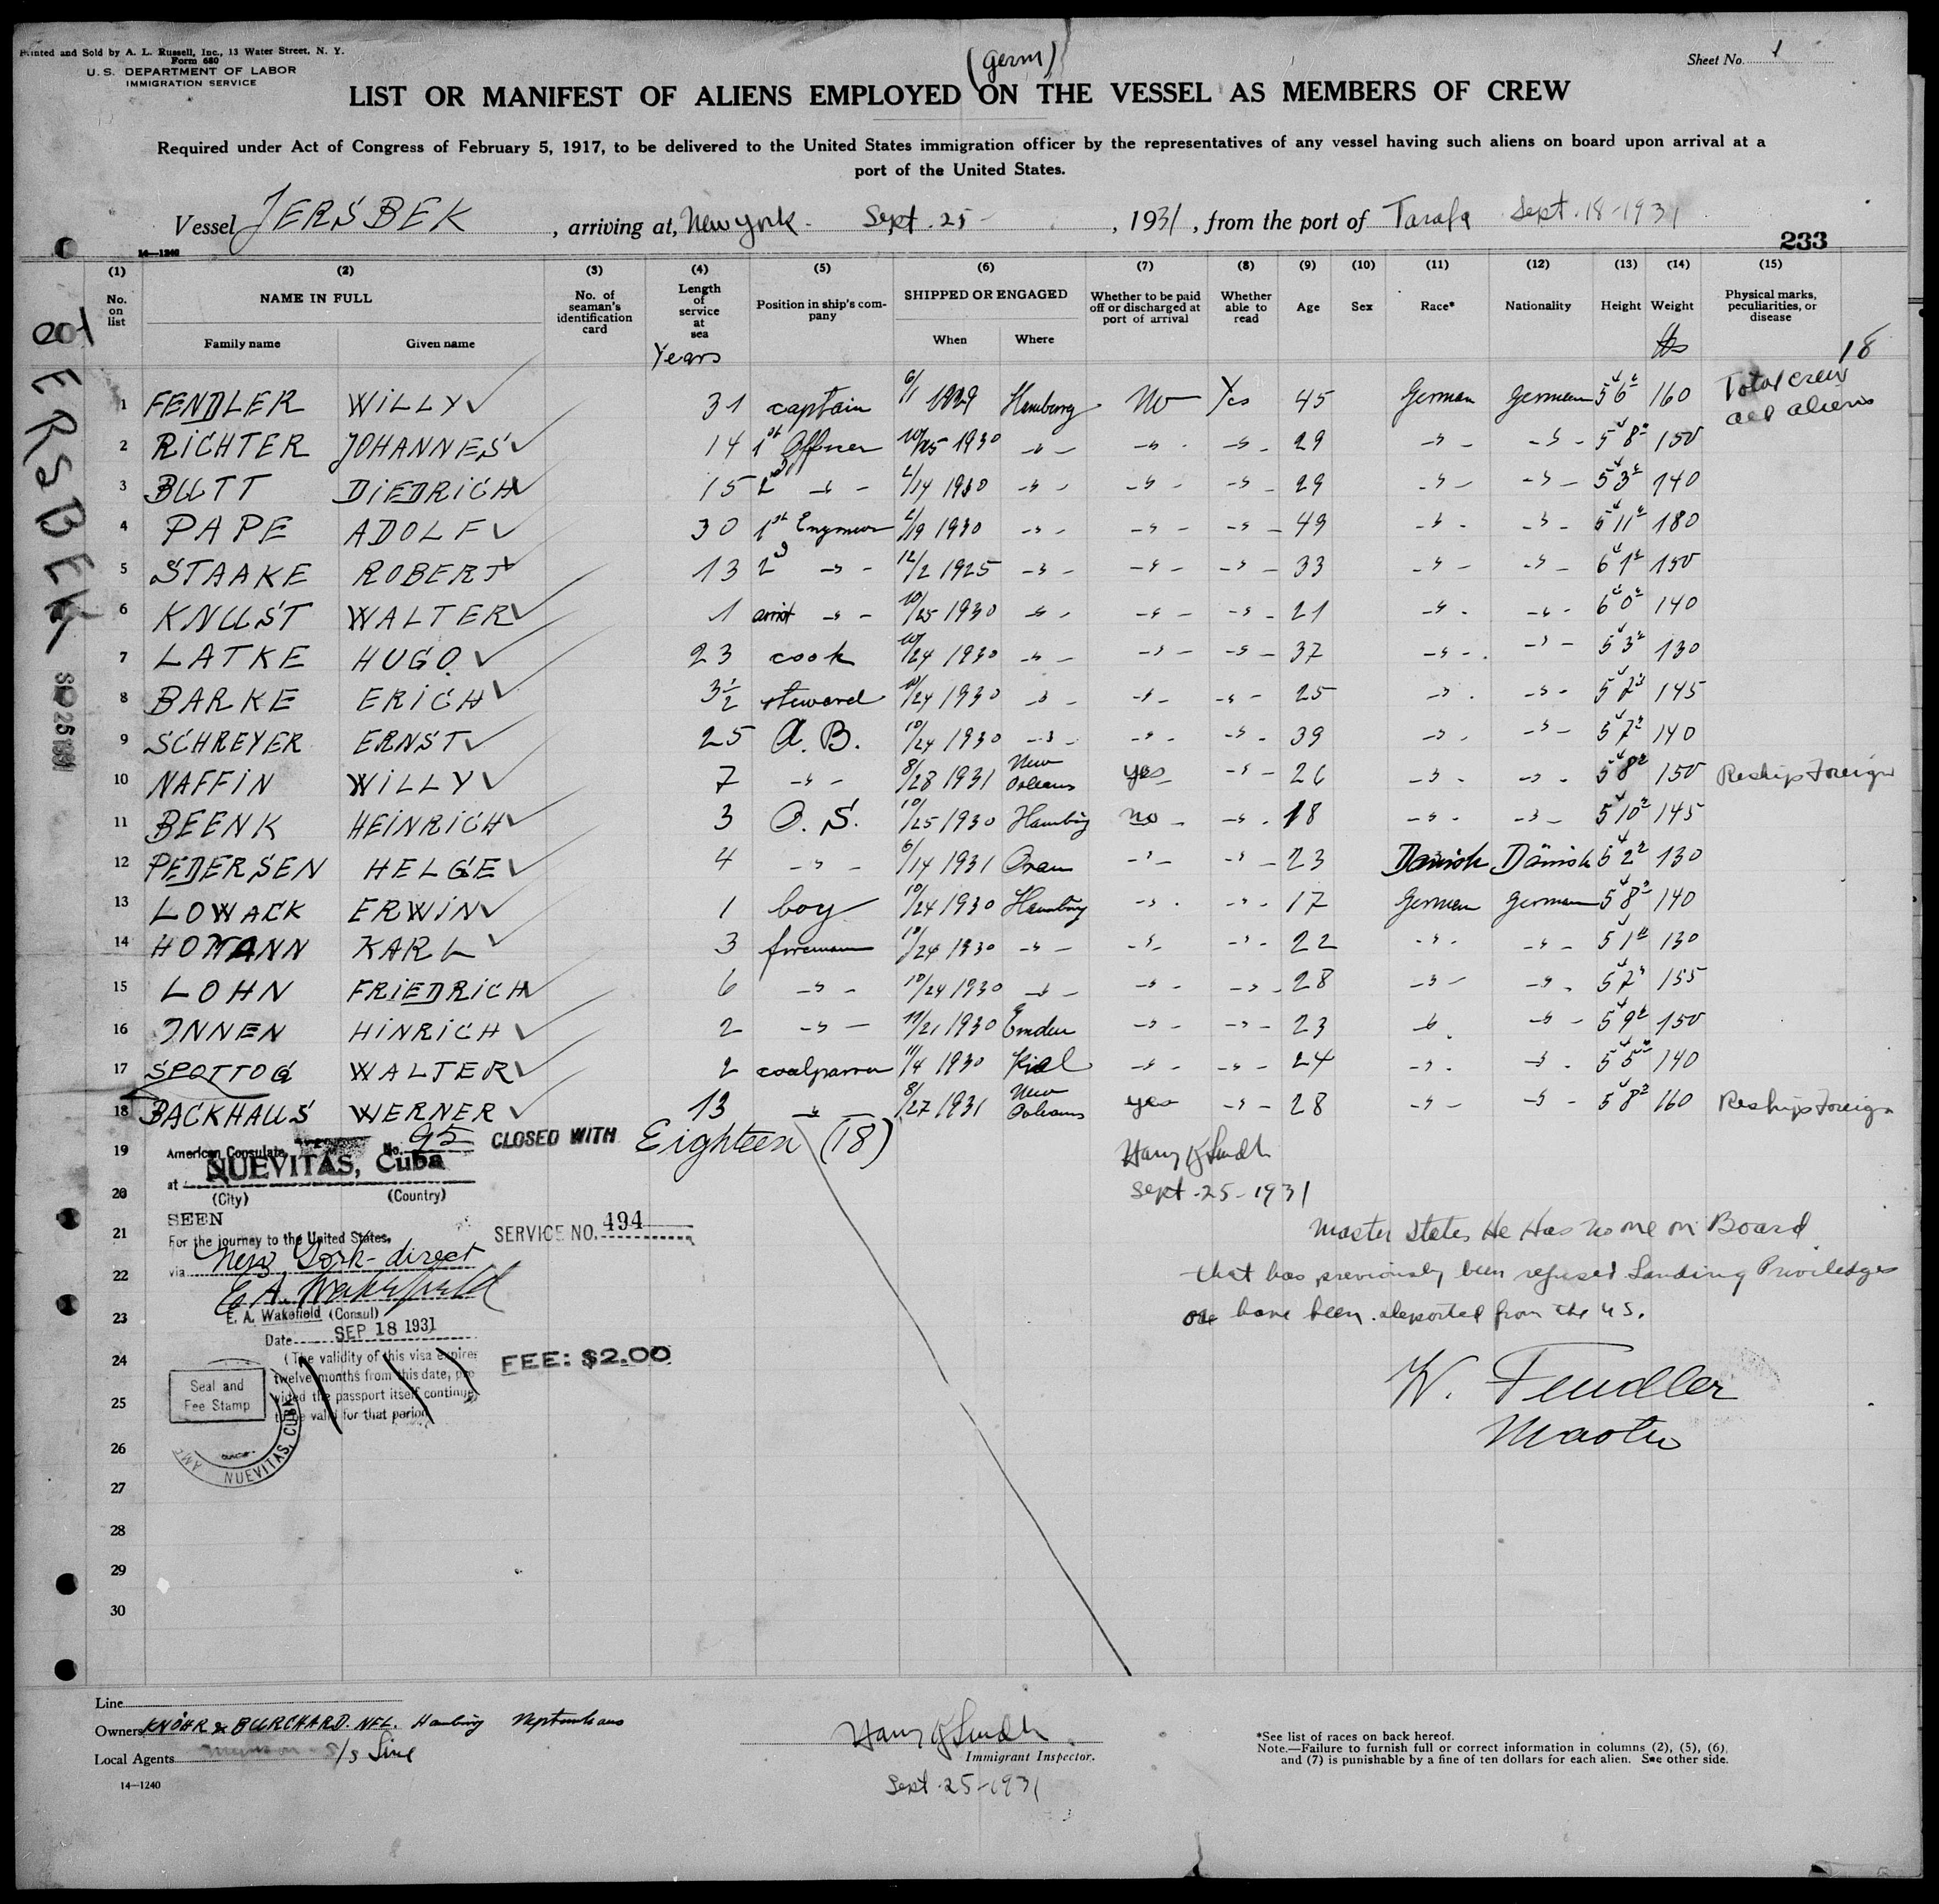 Printed and Sold by A. L. Russell, Inc., 13 Water Street, N. Y.
Form 680
U. S. DEPARTMENT OF LABOR
IMMIGRATION SERVICE
(Germ)
Sheet No. 1
LIST OR MANIFEST OF ALIENS EMPLOYED ON THE VESSEL AS MEMBERS OF CREW
Required under Act of Congress of February 5, 1917, to be delivered to the United States immigration officer by the representatives of any vessel having such aliens on board upon arrival at a
port of the United States.
Vessel JERSBEK, arriving at, New York. Sept. 25 - , 1931, from the port of Tarafa Sept. 18-1931
14—1240
233
(1) (2) (3) (4) (5) (6) (7) (8) (9) (10) (11) (12) (13) (14) (15)
No. on list NAME IN FULL Family name Given name No. of seaman's identification card Length of service at sea Position in ship's company SHIPPED OR ENGAGED When Where Whether to be paid off or discharged at port of arrival Whether able to read Age Sex Race* Nationality Height Weight Physical marks, peculiarities, or disease
Years lbs 18
JERSBEK
SEP 25 1931
Total crew
all aliens
1 FENDLER WILLY 31 captain 6/1 1929 Hamburg No Yes 45 German German 5 6 160
2 RICHTER JOHANNES 14 1st Officer 10/25 1930 -"- -"- -"- 29 -"- -"- 5 8 150
3 BUTT DIEDRICH 15 2d -"- 2/14 1930 -"- -"- -"- 29 -"- -"- 5 3 140
4 PAPE ADOLF 30 1st Engineer 2/19 1930 -"- -"- -"- 49 -"- -"- 5 11 180
5 STAAKE ROBERT 13 2d -"- 12/2 1925 -"- -"- -"- 33 -"- -"- 6 1 150
6 KNUST WALTER 1 assist -"- 10/25 1930 -"- -"- -"- 21 -"- -"- 6 0 140
7 LATKE HUGO 23 cook 10/24 1930 -"- -"- -"- 37 -"- -"- 5 3 130
8 BARKE ERICH 3½ steward 10/24 1930 -"- -"- -"- 25 -"- -"- 5 7 145
9 SCHREYER ERNST 25 A. B. 10/24 1930 -"- -"- -"- 39 -"- -"- 5 7 140
10 NAFFIN WILLY 7 -"- 8/28 1931 New Orleans yes -"- 26 -"- -"- 5 8 150 Reship Foreign
11 BEENK HEINRICH 3 O. S. 10/25 1930 Hamburg no -"- 18 -"- -"- 5 10 145
12 PEDERSEN HELGE 4 -"- 6/14 1931 Oran -"- -"- 23 Danish Danish 5 2 130
13 LOWACK ERWIN 1 boy 10/24 1930 Hamburg -"- -"- 17 German German 5 8 140
14 HOMANN KARL 3 fireman 10/24 1930 -"- -"- -"- 22 -"- -"- 5 1 130
15 LOHN FRIEDRICH 6 -"- 10/24 1930 -"- -"- -"- 28 -"- -"- 5 7 155
16 INNEN HINRICH 2 -"- 11/21 1930 Emden -"- -"- 23 -"- -"- 5 9 150
17 SPOTTOG WALTER 2 coalpasser 11/4 1930 Kiel -"- -"- 24 -"- -"- 5 5 140
18 BACKHAUS WERNER 13 -"- 8/27 1931 New Orleans yes -"- 28 -"- -"- 5 8 160 Reship Foreign
19
20
21
22
23
24
25
26
27
28
29
30
American Consulate, No. 95 CLOSED WITH Eighteen (18)
at NUEVITAS, Cuba
(City) (Country)
SEEN
For the journey to the United States,
SERVICE NO. 494
via New York - direct
E. A. Wakefield
E. A. Wakefield (Consul)
Date SEP 18 1931
(The validity of this visa expires
twelve months from this date, pro
vided the passport itself continues
to be valid for that period
FEE: $2.00
Seal and
Fee Stamp
NUEVITAS, CUBA
Sept - 25 - 1931
Master States He Has no one on Board
that has previously been refused Landing Priviledges
or have been deported from the U S.
W. Fendler
Master
Line
Owners KNÖHR & BURCHARD. NFL. Hamburg Neptunhaus
Local Agents Munson S/S Line
14—1240
Immigrant Inspector.
Sept. 25-1931
*See list of races on back hereof.
Note.—Failure to furnish full or correct information in columns (2), (5), (6),
and (7) is punishable by a fine of ten dollars for each alien. See other side.